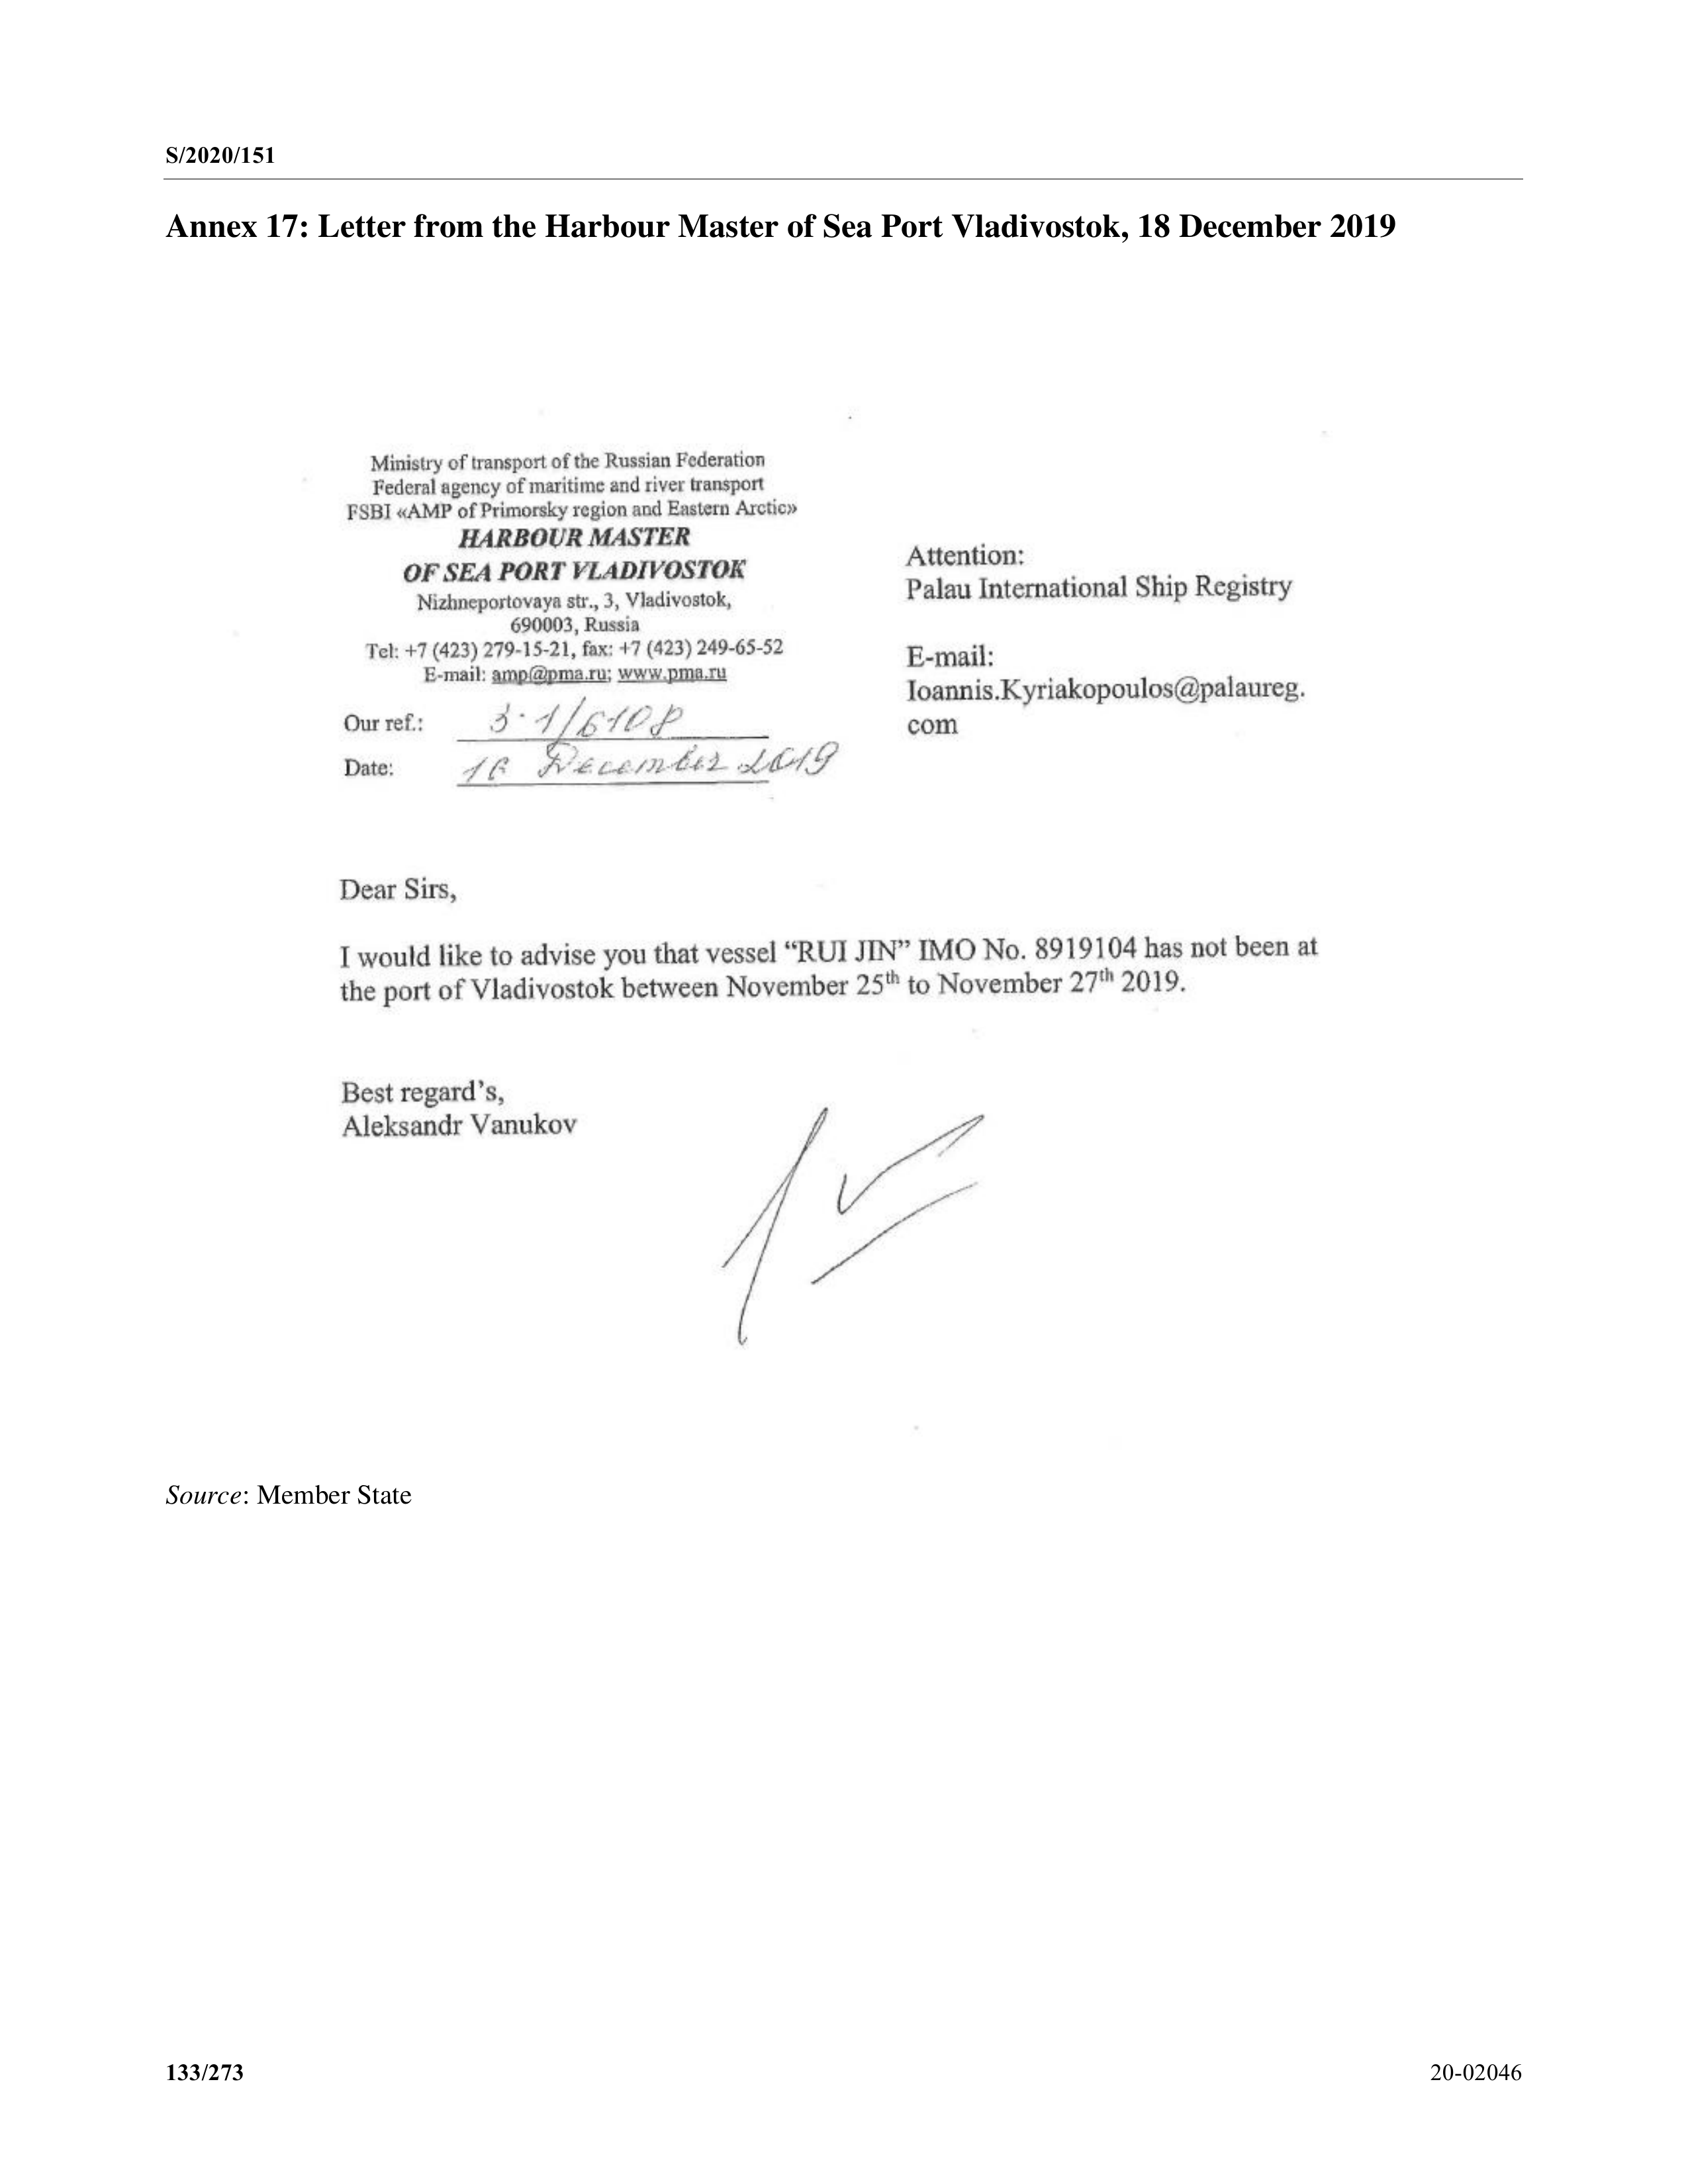 S/2020/151
Annex 17: Letter from the Harbour Master of Sea Port Vladivostok, 18 December 2019
Ministry of transport of the Russian Federation
Federal agency of maritime and river transport
FSBI «AMP of Primorsky region and Eastern Arctic»
HARBOUR MASTER
OF SEA PORT VLADIVOSTOK
Nizhneportovaya str., 3, Vladivostok,
690003, Russia
Tel: +7 (423) 279-15-21, fax: +7 (423) 249-65-52
E-mail: amp@pma.ru; www.pma.ru
Our ref.: 3.1/6108
Date: 18 December 2019
Attention:
Palau International Ship Registry
E-mail:
Ioannis.Kyriakopoulos@palaureg.
com
Dear Sirs,
I would like to advise you that vessel “RUI JIN” IMO No. 8919104 has not been at
the port of Vladivostok between November 25th to November 27th 2019.
Best regard’s,
Aleksandr Vanukov
Source: Member State
133/273
20-02046